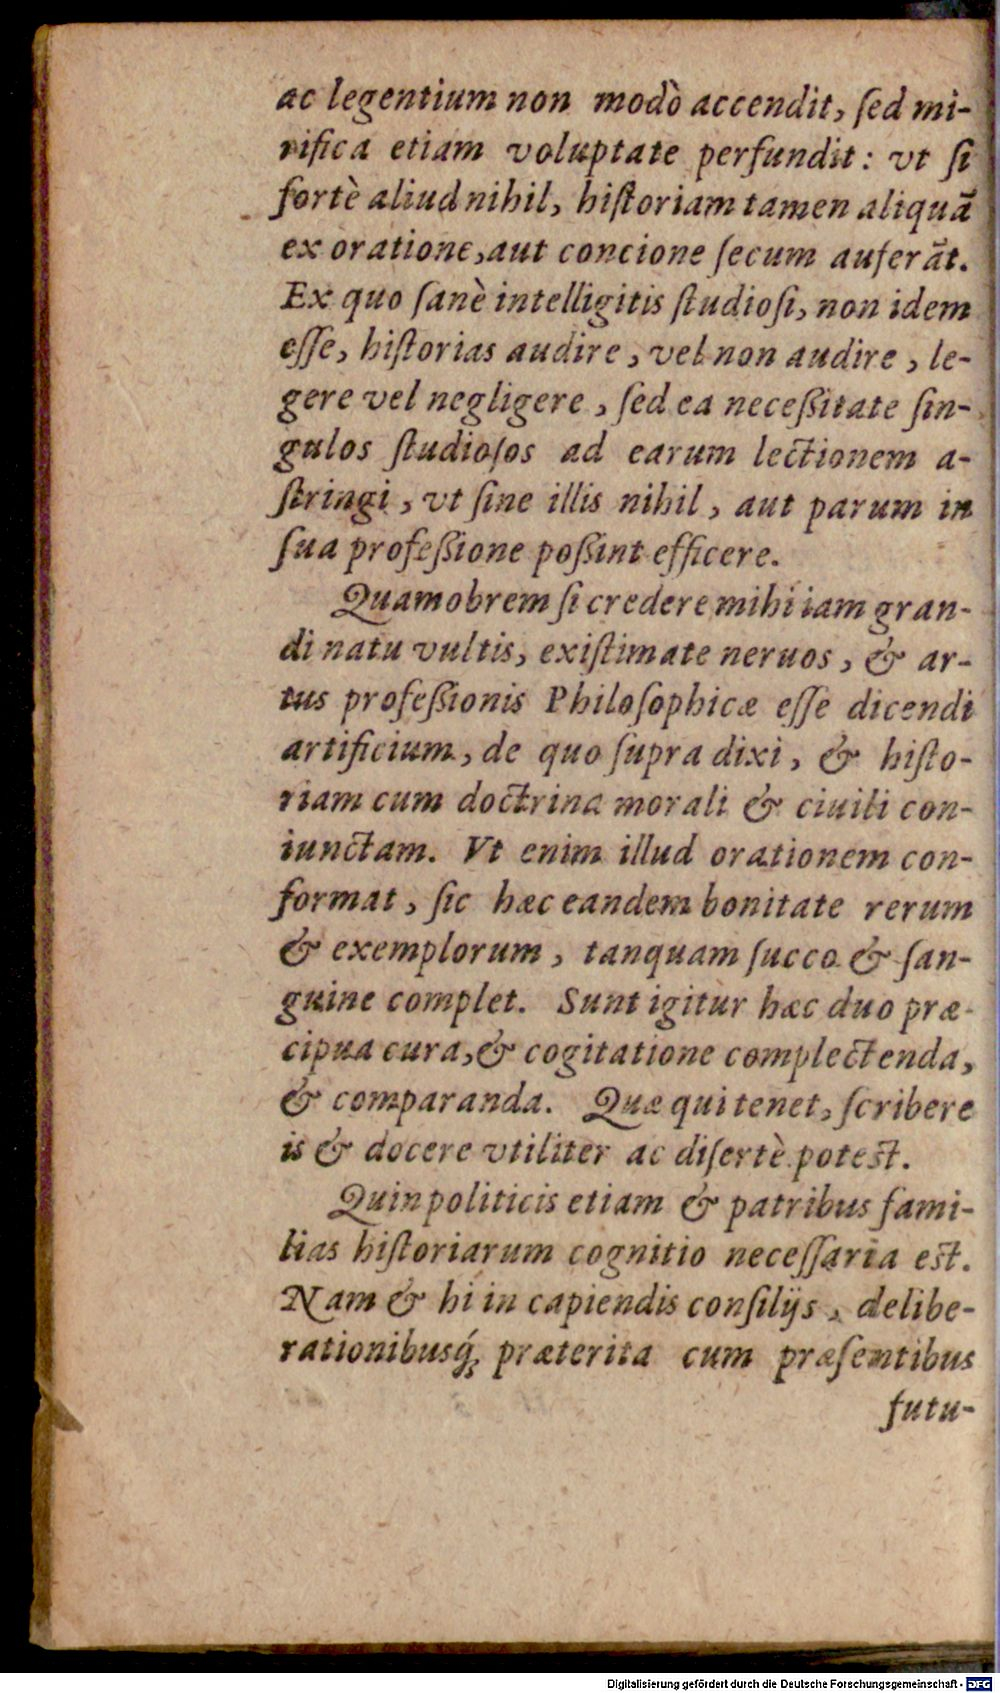 ac legentium non modò accendit, ſed mi-
rifica etiam voluptate perfundit: vt ſi
fortè aliud nihil, hiſtoriam tamen aliquã
ex oratione, aut concione ſecum auferãt.
Ex quo ſanè intelligitis ſtudioſi, non idem
eſſe, hiſtorias audire, vel non audire, le-
gere vel negligere, ſed ea neceßitate ſin-
gulos ſtudioſos ad earum lectionem a-
ſtringi, vt ſine illis nihil, aut parum in
ſua profeßione poßint efficere.
Quamobrem ſi credere mihi iam gran-
di natu vultis, exiſtimate neruos, & ar-
tus profeßionis Philoſophicæ eſſe dicendi
artificium, de quo ſupra dixi, & hiſto-
riam cum doctrina morali & ciuili con-
iunctam. Vt enim illud orationem con-
format, ſic hæc eandem bonitate rerum
& exemplorum, tanquam ſucco & ſan-
guine complet. Sunt igitur hæc duo præ-
cipua cura, & cogitatione complectenda,
& comparanda. Quæ qui tenet, ſcribere
is & docere vtiliter ac diſertè potest.
Quin politicis etiam & patribus fami-
lias hiſtoriarum cognitio neceſſaria est.
Nam & hi in capiendis conſilijs, delibe-
rationibusq́; præterita cum præſentibus
futu-
Digitalisierung gefördert durch die Deutsche Forschungsgemeinschaft - DFG